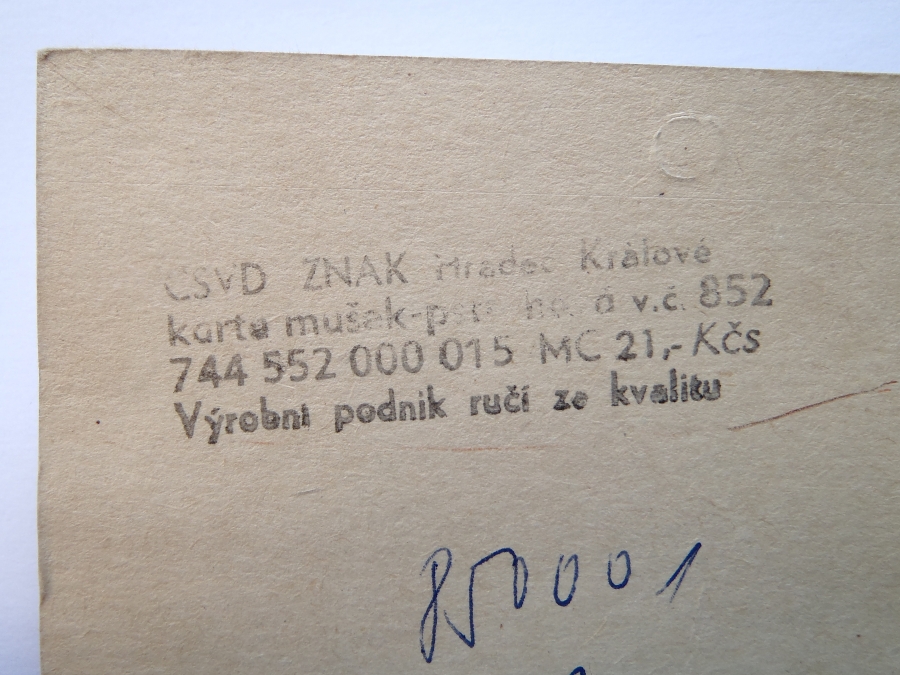 ČSVD ZNAK Hradec Králové
karta mušek v.č. 852
744 552 000 015 MC 21,- Kčs
Výrobní podnik ručí za kvalitu
850001